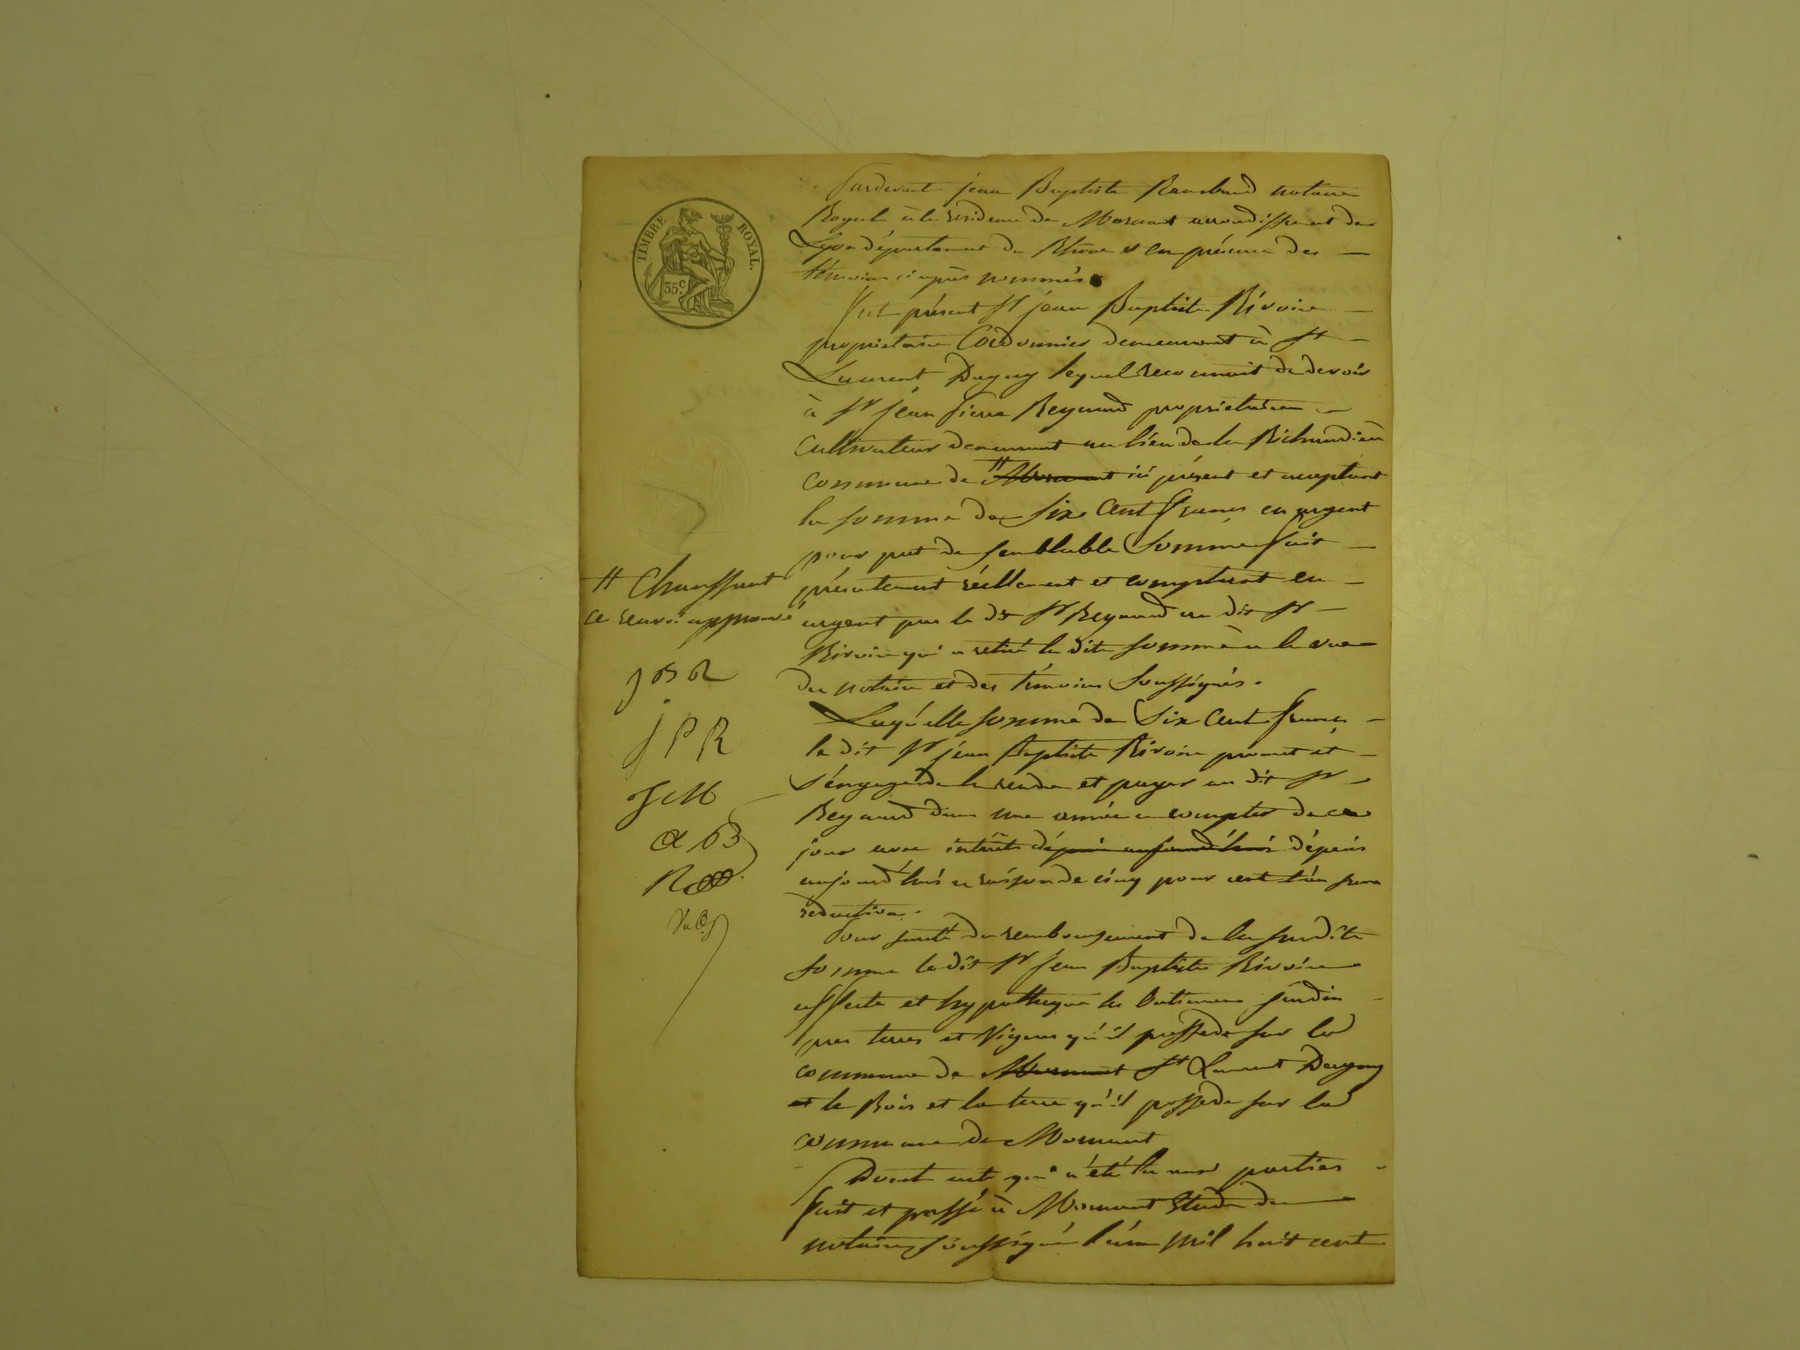 TIMBRE ROYAL.
35c
Pardevant jean Baptiste Rambaud notaire
Royale à la résidence de Mornant arrondissement de
Lyon département du Rhône et en présence des
témoins ci après nommés
Fut présent Sr jean Baptiste Rivoire
propriétaire Cordonnier demeurant à St
Laurent Dagny lequel reconnait de devoir
à Sr jean pierre Reynard propriétaire
cultivateur demeurant au lieu de la Richaudière
commune de # Mornant ici présent et acceptant
la somme de six Cent francs en argent
pour pret de semblable Somme fait
présentement réellement et comptant en
argent par le dit Sr Reynard au dit Sr
Rivoire qui a retiré la dite somme à la vue
du notaire et des témoins Soussignés.
# Chaussant
ce renvoi approuvé
JBR
JPR
Laquelle somme de Six Cent francs
le dit Sr jean Baptiste Rivoire promet et
s'éngage de la rendre et payer au dit Sr
Reynard dans une année a compter de ce
jour avec intérêts dépuis aujourd'hui dépuis
aujourd'hui a raison de cinq pour cent l'an sans
réduction.
Pour sureté du remboursement de la susdite
somme le dit Sr jean Baptiste Rivoire
affecte et hypothèque les batimens jardin
pres terres et Vignes qu'il possede sur la
commune de Mornant St Laurent Dagny
et le Bois et la terre qu'il possede sur la
commune de Mornant
Dont acte qui a été lu aux parties
fait et passé à Mornant Etude du
notaire soussigné l'an mil huit cent